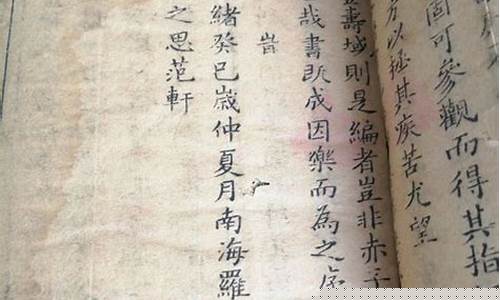 固可參觀而得其指
方以拯其疾苦尤望
壽域則是編者豈非赤子
哉書既成因樂而為之序
旹
緒癸巳歲仲夏月南海羅
之思范軒